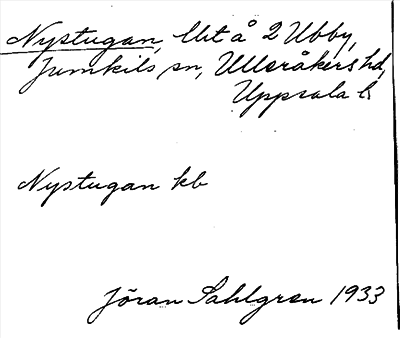 Nystugan, lht å 2 Ubby,
Jumkils sn, Ulleråkers hd,
Uppsala l.
Nystugan kb
Jöran Sahlgren 1933